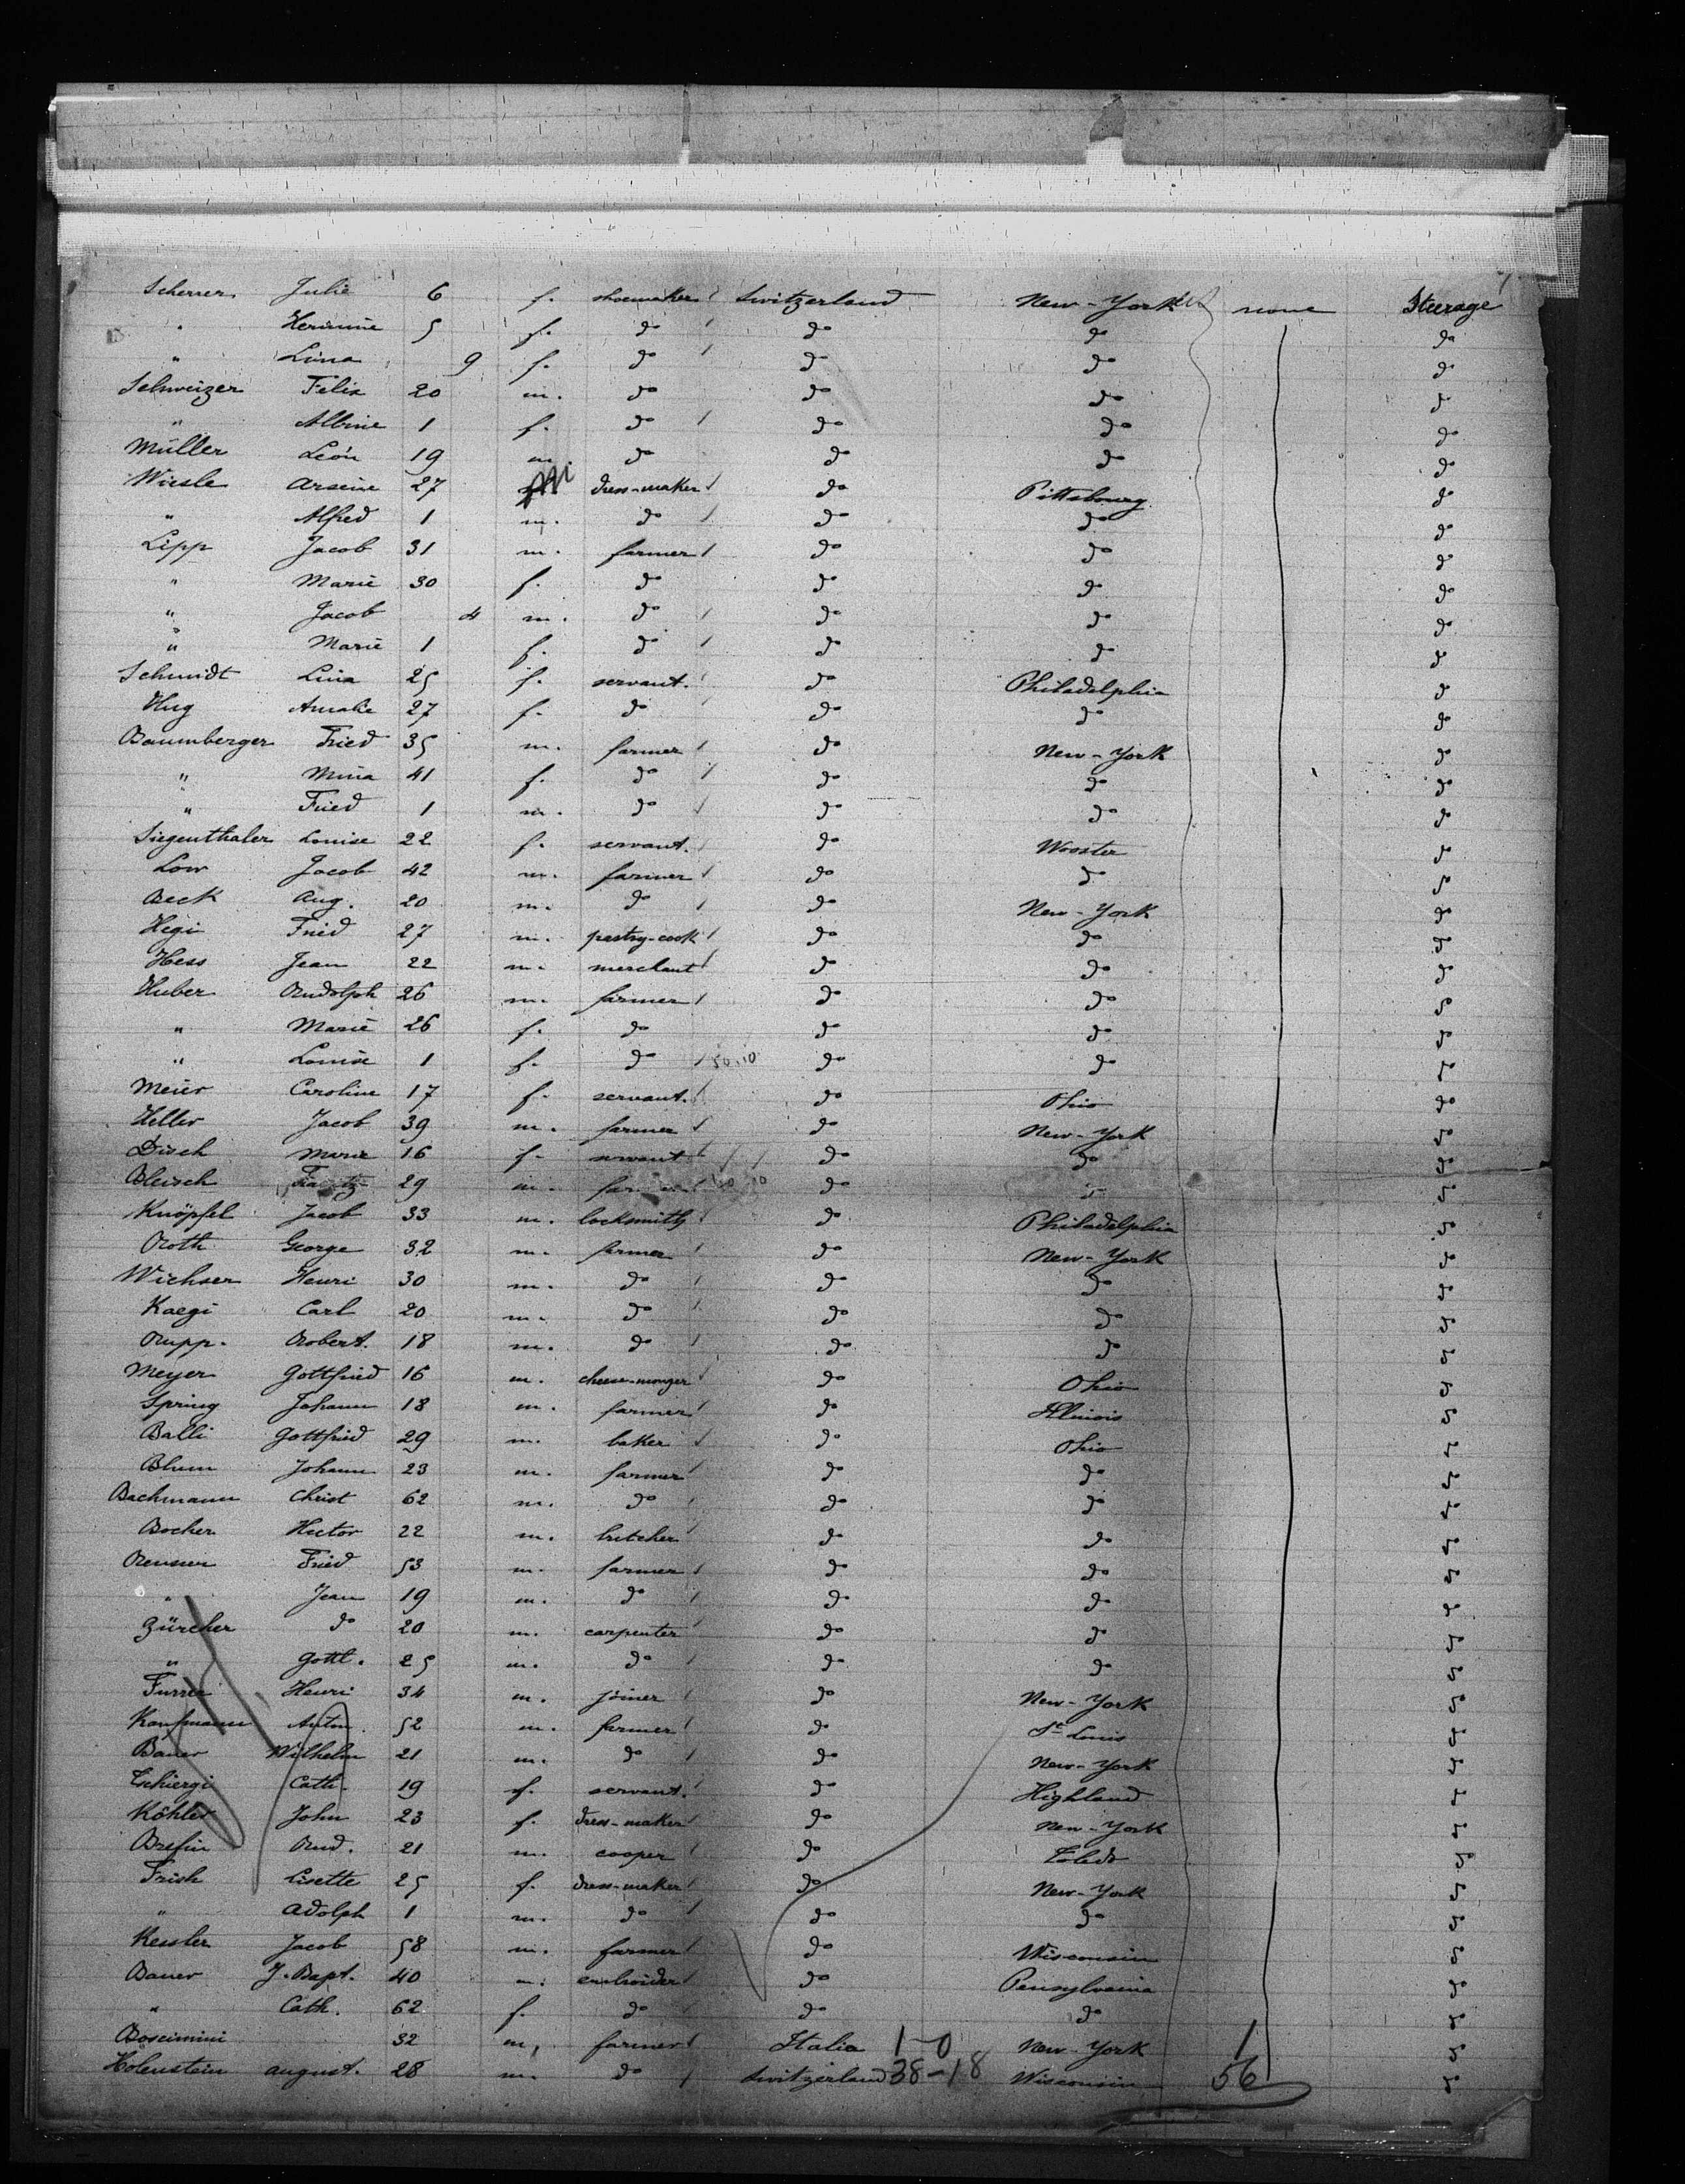 Scherrer Julie 6 f. shoemaker Switzerland New-York none Steerage
" Hermine 5 f. do do do do
" Lina 9 f. do do do do
Schweizer Felix 20 m. do do do do
" Albine 1 f. do do do do
Müller Léon 19 m. do do do do
Wiesle Arsene 27 m dress-maker do Pittsbourg do
" Alfred 1 m. do do do do
Lipp Jacob 31 m. farmer do do do
" Marie 30 f. do do do do
" Jacob 4 m. do do do do
" Marie 1 f. do do do do
Schmidt Lina 25 f. servant. do Philadelphia do
Hug Amalie 27 f. do do do do
Baumberger Fried 35 m. farmer do New-York do
" Mina 41 f. do do do do
" Fried 1 m. do do do do
Siegenthaler Louise 22 f. servant. do Wooster do
Low Jacob 42 m. farmer do do do
Beck Aug. 20 m. do do New-York do
Hegi Fried 27 m. pastry-cook do do do
Hess Jean 22 m. merchant do do do
Huber Rudolph 26 m. farmer do do do
" Marie 26 f. do do do do
" Louise 1 f. do do do do
Meier Caroline 17 f. servant. do Ohio do
Heller Jacob 39 m. farmer do New-York do
Disch Marie 16 f. servant do do do
Bleisch 29 m. farmer do do do
Knöpfel Jacob 33 m. locksmith do Philadelphia do
Roth George 32 m. farmer do New-York do
Wichser Henri 30 m. do do do do
Kaegi Carl 20 m. do do do do
Rupp. Robert. 18 m. do do do do
Meyer Gottfried 16 m. cheese-monger do Ohio do
Spring Johann 18 m. farmer do Illinois do
Balli Gottfried 29 m. baker do Ohio do
Blum Johann 23 m. farmer do do do
Bachmann Christ 62 m. do do do do
Bocher Hector 22 m. butcher do do do
Renner Fried 53 m. farmer do do do
" Jean 19 m. do do do do
Zürcher do 20 m. carpenter do do do
" Gottl. 25 m. do do do do
Furrer Henri 34 m. joiner do New-York do
Kaufmann Anton 52 m. farmer do St Louis do
Bauer Wilhelm 21 m. do do New-York do
Tschiergi Cath. 19 f. servant. do Highland do
Köhler John 23 f. dress-maker do New-York do
Brefin Rud. 21 m. cooper do Toledo do
Frish Lisette 25 f. dress-maker do New-York do
" Adolph 1 m. do do do do
Kessler Jacob 58 m. farmer do Wisconsin do
Bauer J. Bapt. 40 m. embroider do Pensylvania do
" Cath. 62 f. do do do do
Boscimini 32 m, farmer Italia 1-0 New-York 1 do
Holenstein August. 28 m. do Switzerland 38-18 Wisconsin 56 do